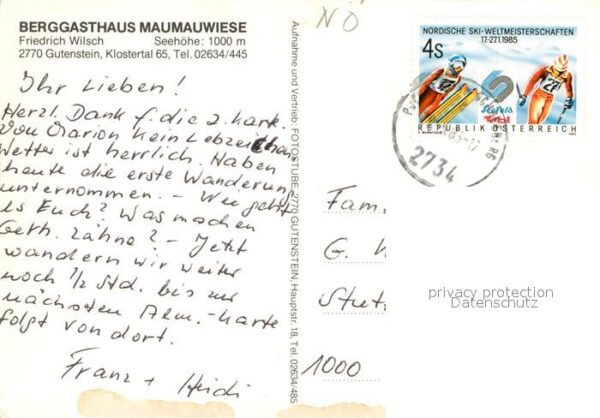 BERGGASTHAUS MAUMAUWIESE
Friedrich Wilsch Seehöhe: 1000 m
2770 Gutenstein, Klostertal 65, Tel. 02634/445
Ihr Lieben!
Herzl. Dank f. die 2. Karte.
Von Marion kein Lebzeichen
Wetter ist herrlich. Haben
heute die erste Wanderung
unternommen. – Wie geht
es Euch? Was machen
Zähne? – Jetzt
wandern wir weiter
noch 1/2 Std. bis zur
nächsten Alm. – Karte
folgt von dort.
Franz + Heidi
Aufnahme und Vertrieb: FOTOSTUBE, 2770 GUTENSTEIN, Hauptstr. 18, Tel. 02634/485
NÖ
NORDISCHE SKI-WELTMEISTERSCHAFTEN
17-27.1.1985
4s
Seefeld
Tirol
REPUBLIK ÖSTERREICH
2734
Fam.
G.
1000
privacy protection
Datenschutz